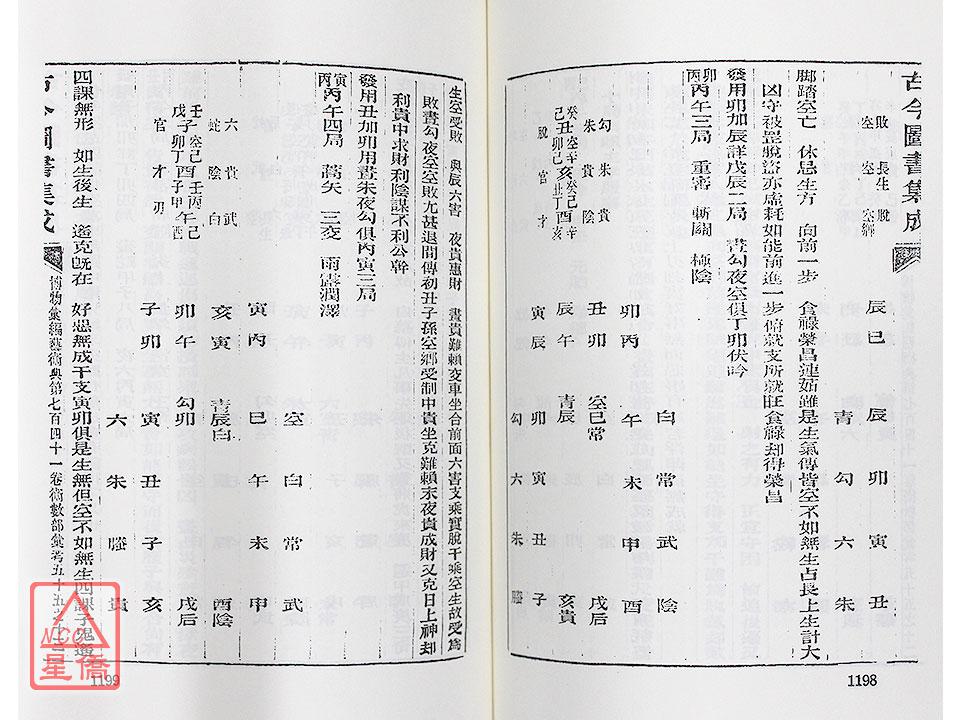 古今圖書集成
敗 長生 脫
空 空 空鄉
辰巳 辰 卯 寅 丑
青 勾 六 朱
脚踏空亡 休息生方 向前一步 食祿榮昌連茹雖是生氣傳皆空不如無生占長上生計大
凶守被罡脫盜亦虛耗如能前進一步俯就支所就旺食祿却得榮昌
發用卯加辰詳戊辰二局 晝勾夜空俱丁卯伏吟
卯丙 丙午三局 重審 斬關 極陰
白 常 武 陰
卯丙 午 未 申 酉
勾 朱 貴
丑卯 空巳常 戌后
朱 貴 陰
辰午 青辰 亥貴
脫 官 才
寅辰 卯 寅 丑 子
勾 六 朱 螣
1198
生空受敗 與辰六害 夜貴惠財 晝貴難賴交車坐合前面六害支乘實脫干乘空生故受為
敗晝勾夜空空敗尤甚退間傳初丑子孫空鄉受制中貴坐克難賴末夜貴成財又克日上神却
利貴中求財利陰謀不利公幹
發用丑加卯用晝朱夜勾俱丙寅三局
寅丙 丙午四局 蒿矢 三交 雨露潤澤
空 白 常 武
寅丙 巳 午 未 申
六 貴 武
亥寅 青辰白 酉陰
蛇 陰 白
卯午 勾卯 戌后
官 才 刃
子卯 寅 丑 子 亥
六 朱 螣 貴
四課無形 如生後生 遙克既在 好惡無成干支寅卯俱是生無但空不如無生四課子鬼遙
古今圖書集成
博物彙編藝術典第七百四十一卷術數部彙考五十五之十二
1199
NCC
星僑